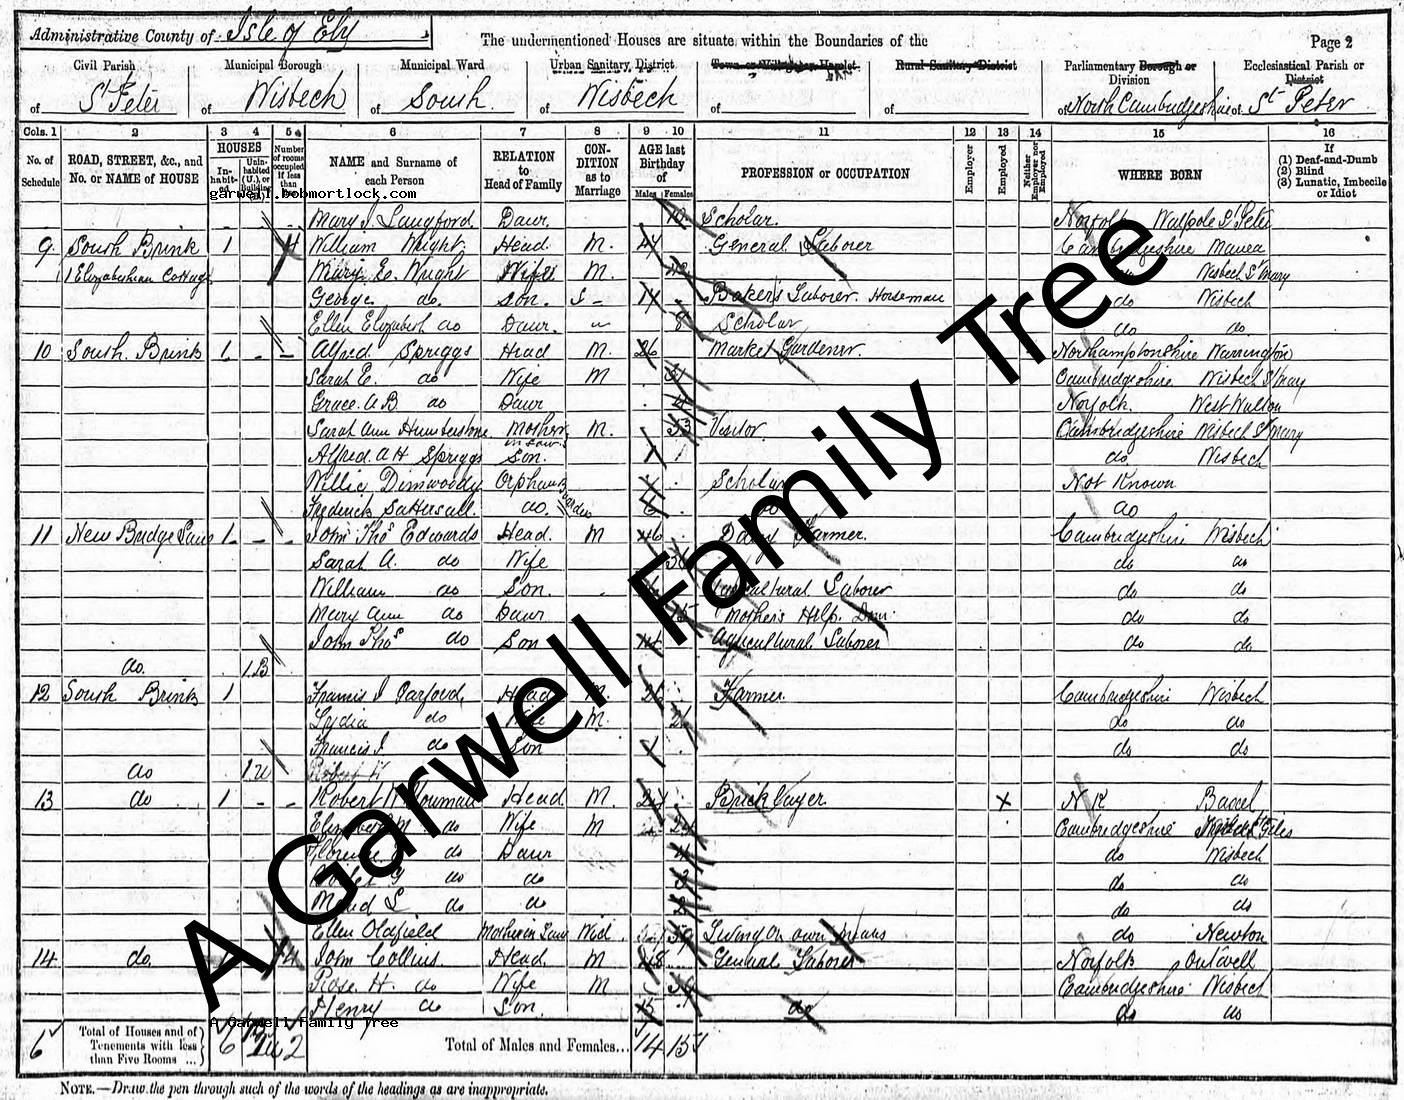 Administrative County of Isle of Ely
The undermentioned Houses are situate within the Boundaries of the
Page 2
Civil Parish Municipal Borough Municipal Ward Urban Sanitary District Town or Village or Hamlet Rural Sanitary District Parliamentary Borough or Division Ecclesiastical Parish or District
of St Peter of Wisbech of South of Wisbech of of of North Cambridgeshire of St Peter
Cols. 1 2 3 4 5 6 7 8 9 10 11 12 13 14 15 16
No. of Schedule
ROAD, STREET, &c., and No. or NAME of HOUSE
HOUSES
Inhabited
Uninhabited (U.), or Building (B.)
Number of rooms occupied if less than five
NAME and Surname of each Person
RELATION to Head of Family
CONDITION as to Marriage
AGE last Birthday of
Males Females
PROFESSION or OCCUPATION
Employer
Employed
Neither Employer nor Employed
WHERE BORN
If
(1) Deaf-and-Dumb
(2) Blind
(3) Lunatic, Imbecile or Idiot
garwell.bobmortlock.com
Mary J Langford Daur. 10 Scholar Norfolk Walpole St Peter
9 South Brink 1 4 William Wright Head M. 47 General Laborer Cambridgeshire Manea
1 Elizabethian Cottage Mary E. Wright Wife M. Wisbech St Mary
George do. Son. S - 14 Baker's Laborer. Horseman do Wisbech
Ellen Elizabeth do Daur. 8 Scholar do do.
10 South Brink 1 - - Alfred Spriggs Head M. 26 Market Gardener. Northamptonshire Warrington
Sarah E. do Wife M Cambridgeshire Wisbech St Mary
Grace. A.B. do Daur Norfolk. West Walton
Sarah Ann Humberstone Mother in Law M. 53 Visitor. Cambridgeshire Wisbech St Mary
Alfred. A H Spriggs Son. 1 do Wisbech
Willie Orphan Scholar Not Known
Fredrick do. 6 do do
11 New Bridge Lane 1 - - John Thos Edwards Head. M 46 Dairy Farmer. Cambridgeshire Wisbech
Sarah A. do Wife do do
William do Son. Agricultural Laborer do do
Mary Ann do Daur 15 Mothers Help. Dom do do
John Thos do Son 14 Agricultural Laborer do do
do. 1B
12 South Brink 1 Francis J Parford Head M. 26 Farmer. Cambridgeshire Wisbech
Lydia do Wife M. 26 do do
Francis J. do Son 1 do do
do 1 U
13 do 1 - - Robert Head M. Brick Layer X N K
do Wife M Cambridgeshire
Florence do Daur do Wisbech
do do do do
Maud L do do do do
Ellen Oldfield Mother in Law Wid. 59 Living on own means do Newton
14 do. 4 John Collins Head. M 48 General Laborer Norfolk Outwell
Rose. H. do Wife M Cambridgeshire Wisbech
Henry do Son 15 do do do
A Garwell Family Tree
6 Total of Houses and of Tenements with less than Five Rooms ... 6 2 Total of Males and Females... 14 15
NOTE.—Draw the pen through such of the words of the headings as are inappropriate.
A Garwell Family Tree